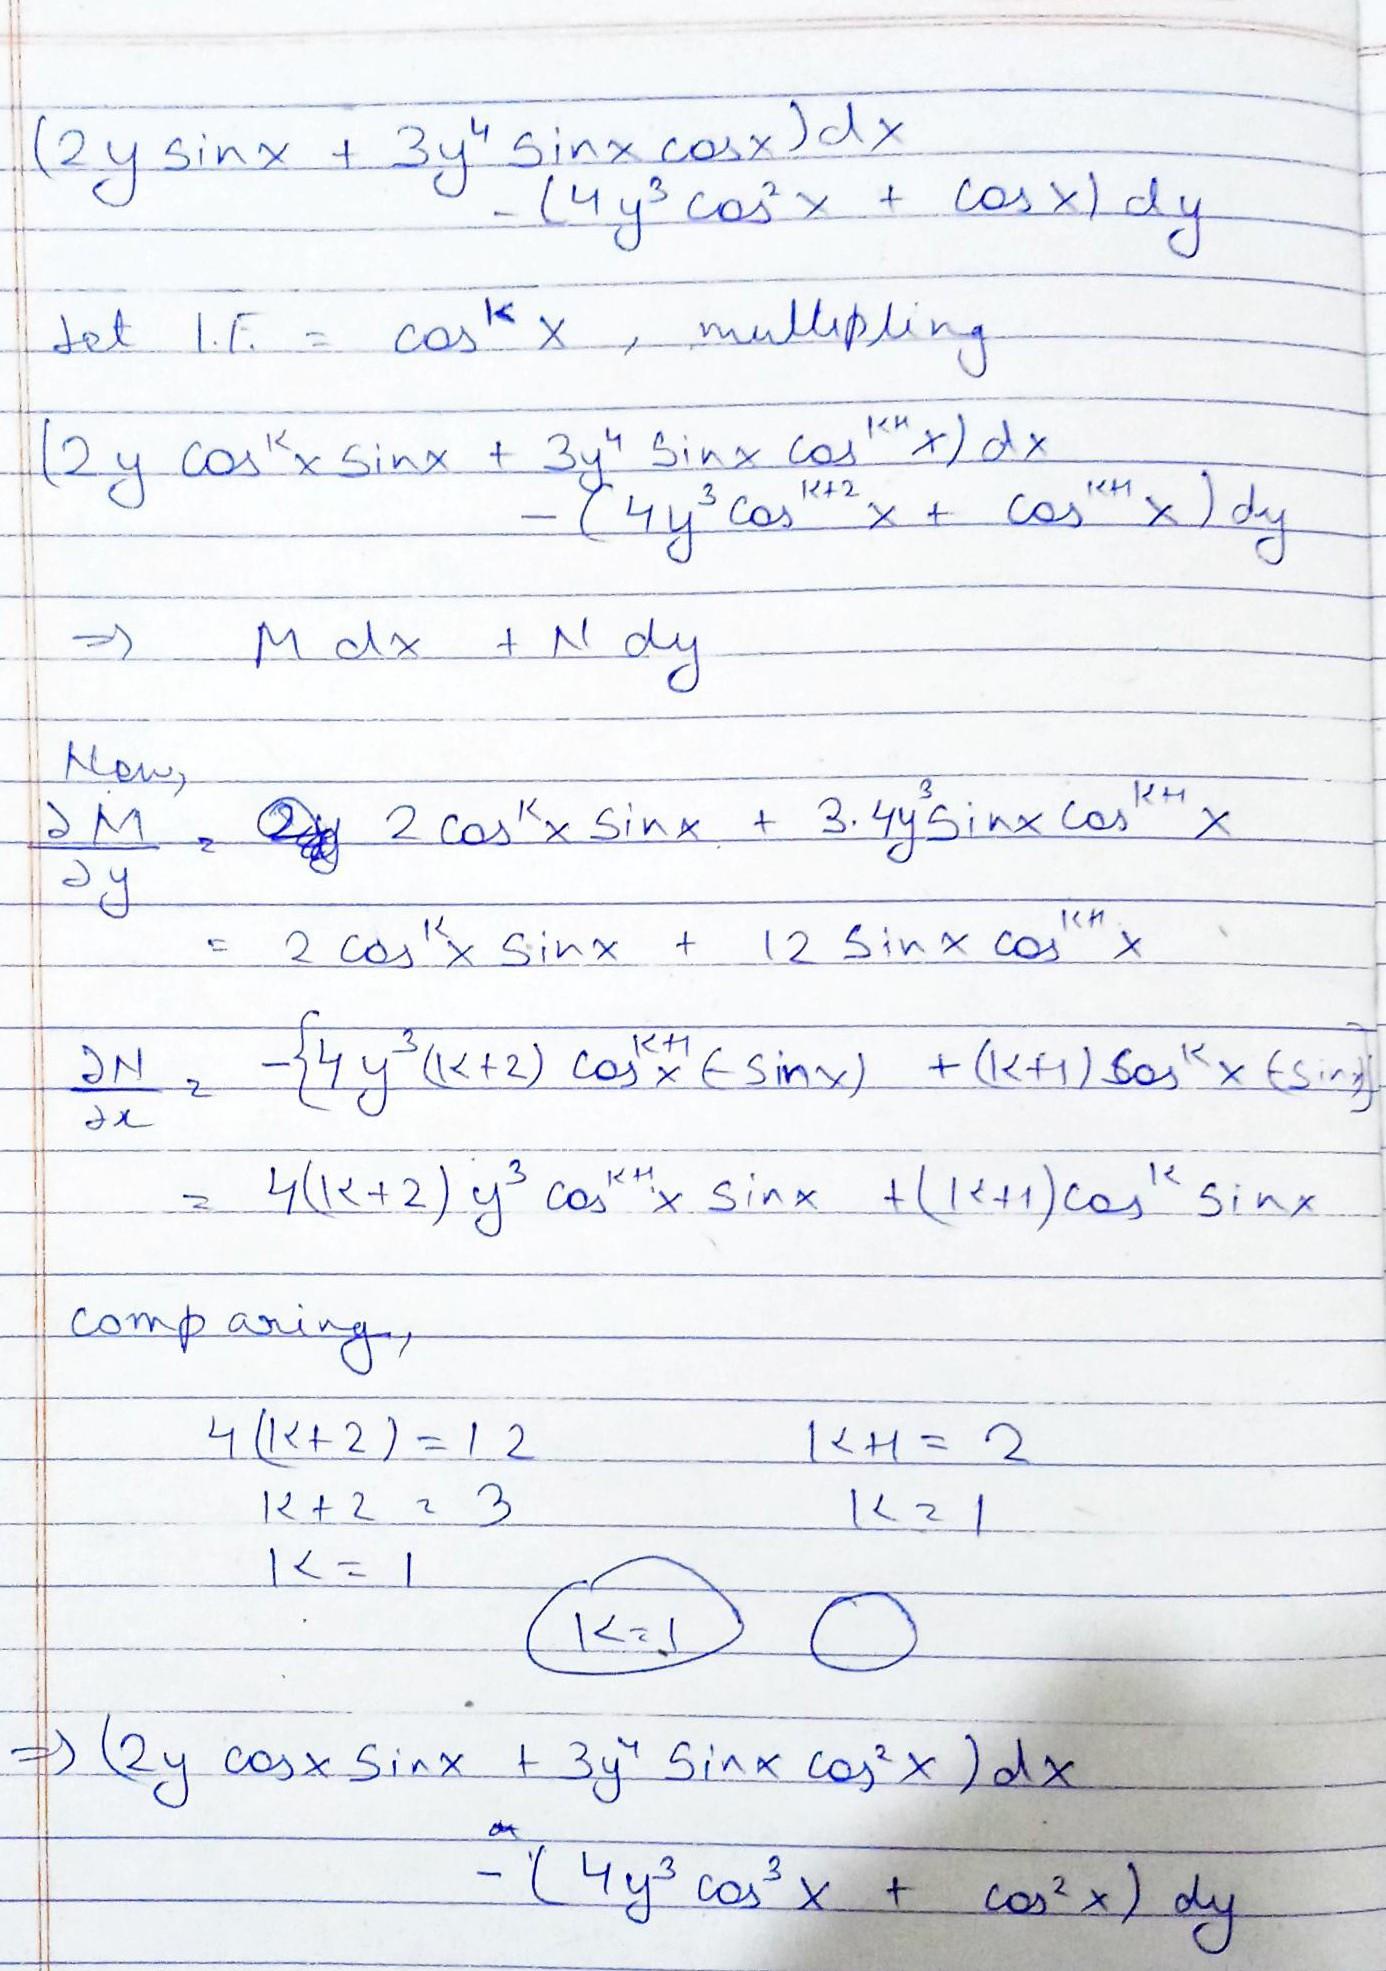 (2y sinx + 3y⁴ sinx cosx)dx
- (4y³ cos²x + cosx) dy
Let I.F. = cosᵏ x , multipling
(2y cosᵏx sinx + 3y⁴ sinx cosᵏ⁺¹x) dx
- (4y³ cosᵏ⁺² x + cosᵏ⁺¹ x) dy
=> M dx + N dy
Now,
∂M/∂y = 2 cosᵏx sinx + 3.4y³ sinx cosᵏ⁺¹ x
= 2 cosᵏx sinx + 12 sinx cosᵏ⁺¹ x
∂N/∂x = -{4y³(k+2) cosᵏ⁺¹x (-sinx) + (k+1) cosᵏx (-sinx)}
= 4(k+2) y³ cosᵏ⁺¹x sinx + (k+1) cosᵏ sinx
comparing,
4(k+2) = 12 k+1 = 2
k+2 = 3 k = 1
k = 1
k=1
=> (2y cosx sinx + 3y⁴ sinx cos²x) dx
- (4y³ cos³x + cos²x) dy